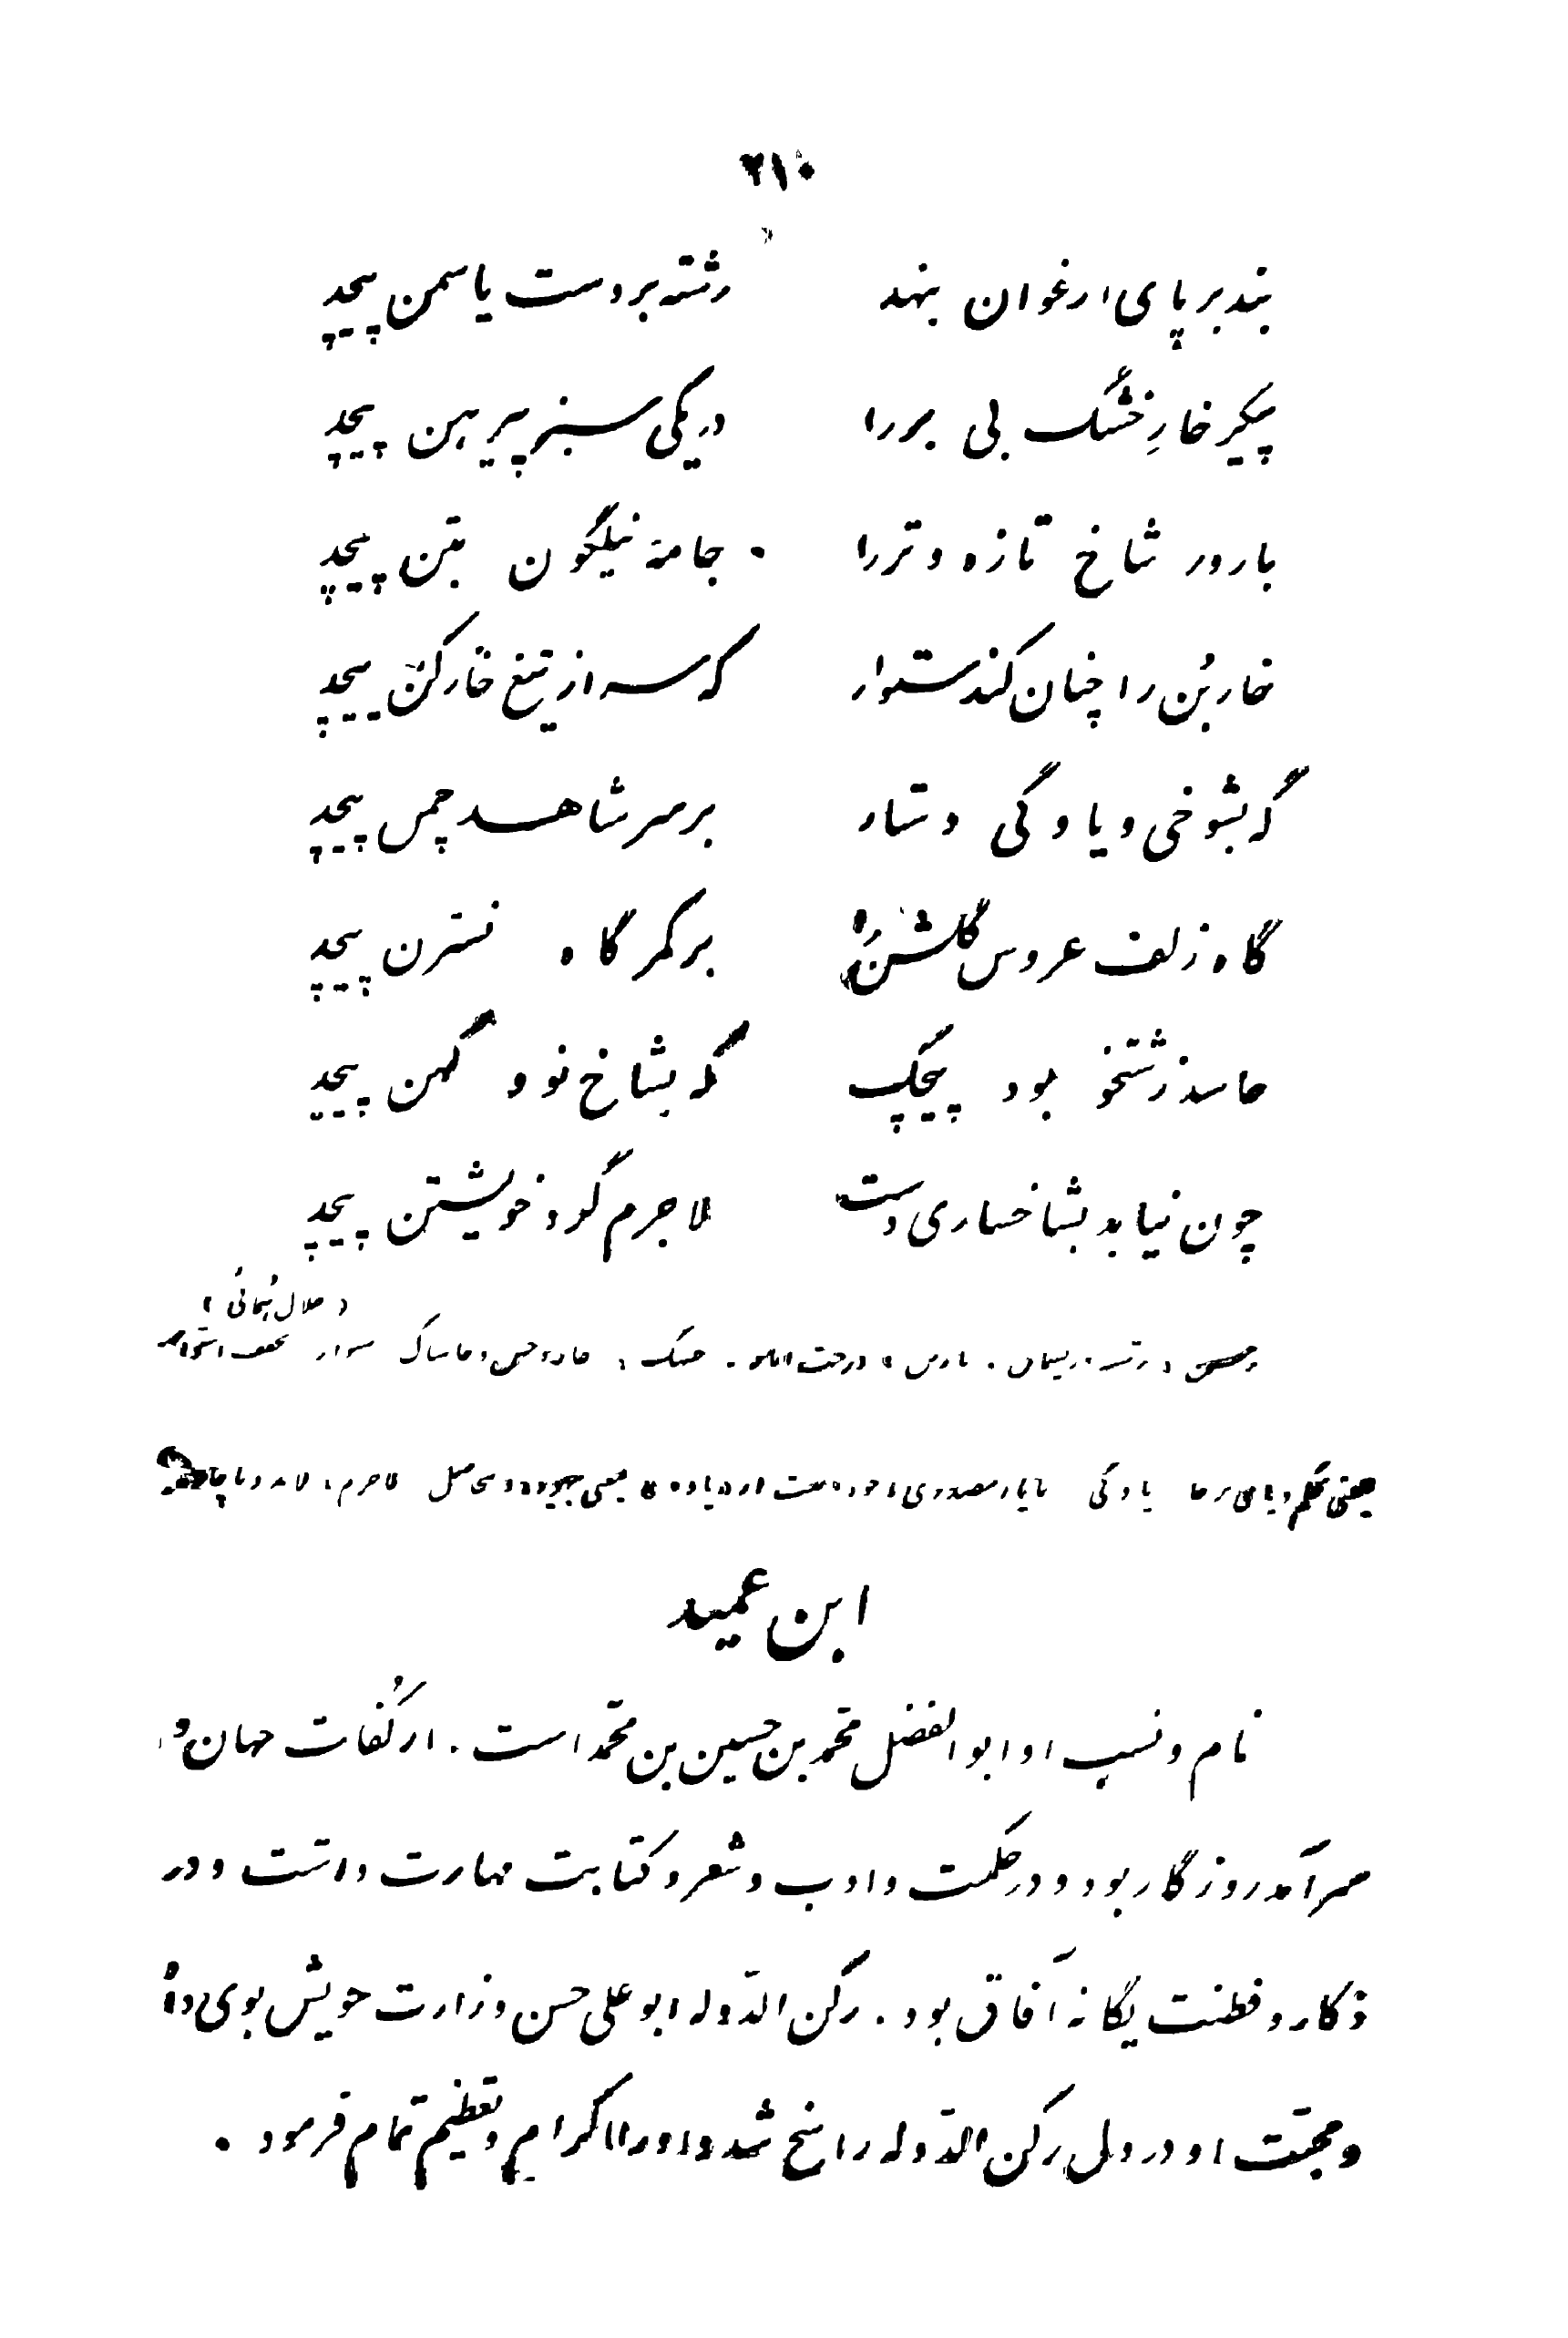 ۲۱۰
بند بر پای ارغوان بنهد رشته بر دست یاسمن پیچد
پیکر خارِ خشک بی بر را در یکی سبز پیرهن پیچد
بارور شاخ تازه و تر را جامهٔ نیلگون بتن پیچد
خار بُن را چنان کند ستوار که سر از تیغ خارکن پیچد
گه بشوخی و یاوگی دستار بر سر شاهد چمن پیچد
گاه زلف عروس گلشن را بر کمرگاه نسترن پیچد
حاسد زشتخو بود پیچک که بشاخ نو و کهن پیچد
چون نیابد بشاخساری دست لاجرم گرد خویشتن پیچد
رشته ریسمان . خشک خار و خس و خاشاک ستوار مخفف استوار
یعنی محکم و پای برجا یاوگی با یاء مصدری بمعنی بیهوده و بیحاصل لاجرم
ابن عمید
نام و نسب او ابوالفضل محمّد بن حسین بن محمّد است . از کُفات جهان و
سرآمد روزگار بود و در حکمت و ادب و شعر و کتابت مهارت داشت و در
ذکاء و فطنت یگانهٔ آفاق بود . رکن الدّوله ابوعلی حسن وزارت خویش بوی داد
و محبّت او در دل رکن الدّوله راسخ شد و او را اکرام و تعظیم تمام فرمود .